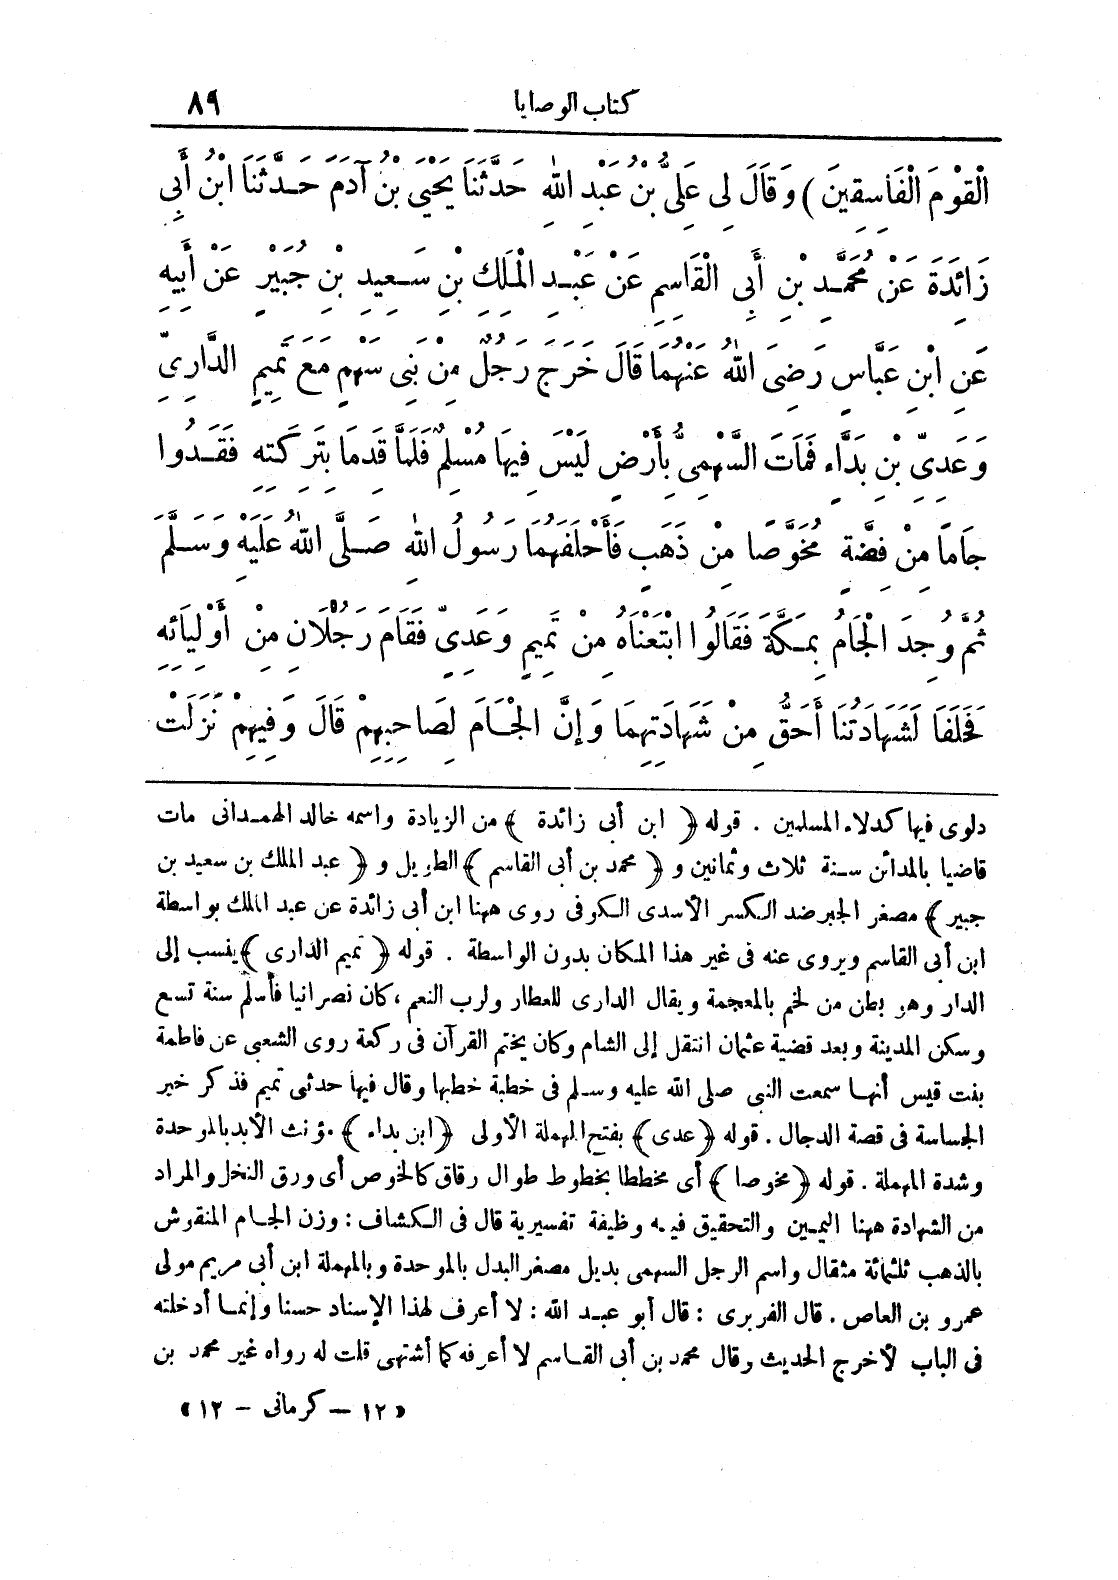 كتاب الوصايا ٨٩
الْقَوْمَ الْفَاسِقِينَ) وَقَالَ لِى عَلِىُّ بْنُ عَبْدِ اللهِ حَدَّثَنَا يَحْيَى بْنُ آدَمَ حَدَّثَنَا ابْنُ أَبِى
زَائِدَةَ عَنْ مُحَمَّدِ بْنِ أَبِى الْقَاسِمِ عَنْ عَبْدِ الْمَلِكِ بْنِ سَعِيدِ بْنِ جُبَيْرٍ عَنْ أَبِيهِ
عَنِ ابْنِ عَبَّاسٍ رَضِىَ اللهُ عَنْهُمَا قَالَ خَرَجَ رَجُلٌ مِنْ بَنِى سَهْمٍ مَعَ تَمِيمٍ الدَّارِىِّ
وَعَدِىِّ بْنِ بَدَّاءٍ فَمَاتَ السَّهْمِىُّ بِأَرْضٍ لَيْسَ فِيهَا مُسْلِمٌ فَلَمَّا قَدِمَا بِتَرِكَتِهِ فَقَدُوا
جَامًا مِنْ فِضَّةٍ مُخَوَّصًا مِنْ ذَهَبٍ فَأَحْلَفَهُمَا رَسُولُ اللهِ صَلَّى اللهُ عَلَيْهِ وَسَلَّمَ
ثُمَّ وُجِدَ الْجَامُ بِمَكَّةَ فَقَالُوا ابْتَعْنَاهُ مِنْ تَمِيمٍ وَعَدِىٍّ فَقَامَ رَجُلَانِ مِنْ أَوْلِيَائِهِ
فَحَلَفَا لَشَهَادَتُنَا أَحَقُّ مِنْ شَهَادَتِهِمَا وَإِنَّ الْجَامَ لِصَاحِبِهِمْ قَالَ وَفِيهِمْ نَزَلَتْ
دلوى فيها كدلاء المسلمين . قوله ﴿ ابن أبى زائدة ﴾ من الزيادة واسمه خالد الهمدانى مات
قاضيا بالمدائن سنة ثلاث وثمانين و ﴿ محمد بن أبى القاسم ﴾ الطويل و ﴿ عبد الملك بن سعيد بن
جبير ﴾ مصغر الجبر ضد الكسر الأسدى الكوفى روى ههنا ابن أبى زائدة عن عبد الملك بواسطة
ابن أبى القاسم ويروى عنه فى غير هذا المكان بدون الواسطة . قوله ﴿ تميم الدارى ﴾ ينسب إلى
الدار وهو بطن من لخم بالمعجمة ويقال الدارى للعطار ولرب النعم ،كان نصرانيا فأسلم سنة تسع
وسكن المدينة وبعد قضية عثمان انتقل إلى الشام وكان يختم القرآن فى ركعة روى الشعبى عن فاطمة
بنت قيس أنها سمعت النبى صلى الله عليه وسلم فى خطبة خطبها وقال فيها حدثنى تميم فذكر خبر
الجساسة فى قصة الدجال . قوله ﴿ عدى ﴾ بفتح المهملة الأولى ﴿ ابن بداء ﴾ مؤنث الأبد بالموحدة
وشدة المهملة . قوله ﴿ مخوصا ﴾ أى مخططا بخطوط طوال رقاق كالخوص أى ورق النخل والمراد
من الشهادة ههنا اليمين والتحقيق فيه وظيفة تفسيرية قال فى الكشاف : وزن الجام المنقوش
بالذهب ثلثمائة مثقال واسم الرجل السهمى بديل مصغر البدل بالموحدة وبالمهملة ابن أبى مريم مولى
عمرو بن العاص . قال الفربرى : قال أبو عبد الله : لا أعرف لهذا الإسناد حسنا وإنما أدخلته
فى الباب لأخرج الحديث وقال محمد بن أبى القاسم لا أعرفه كما أشتهى قلت له رواه غير محمد بن
« ١٢ – كرمانى – ١٢ »